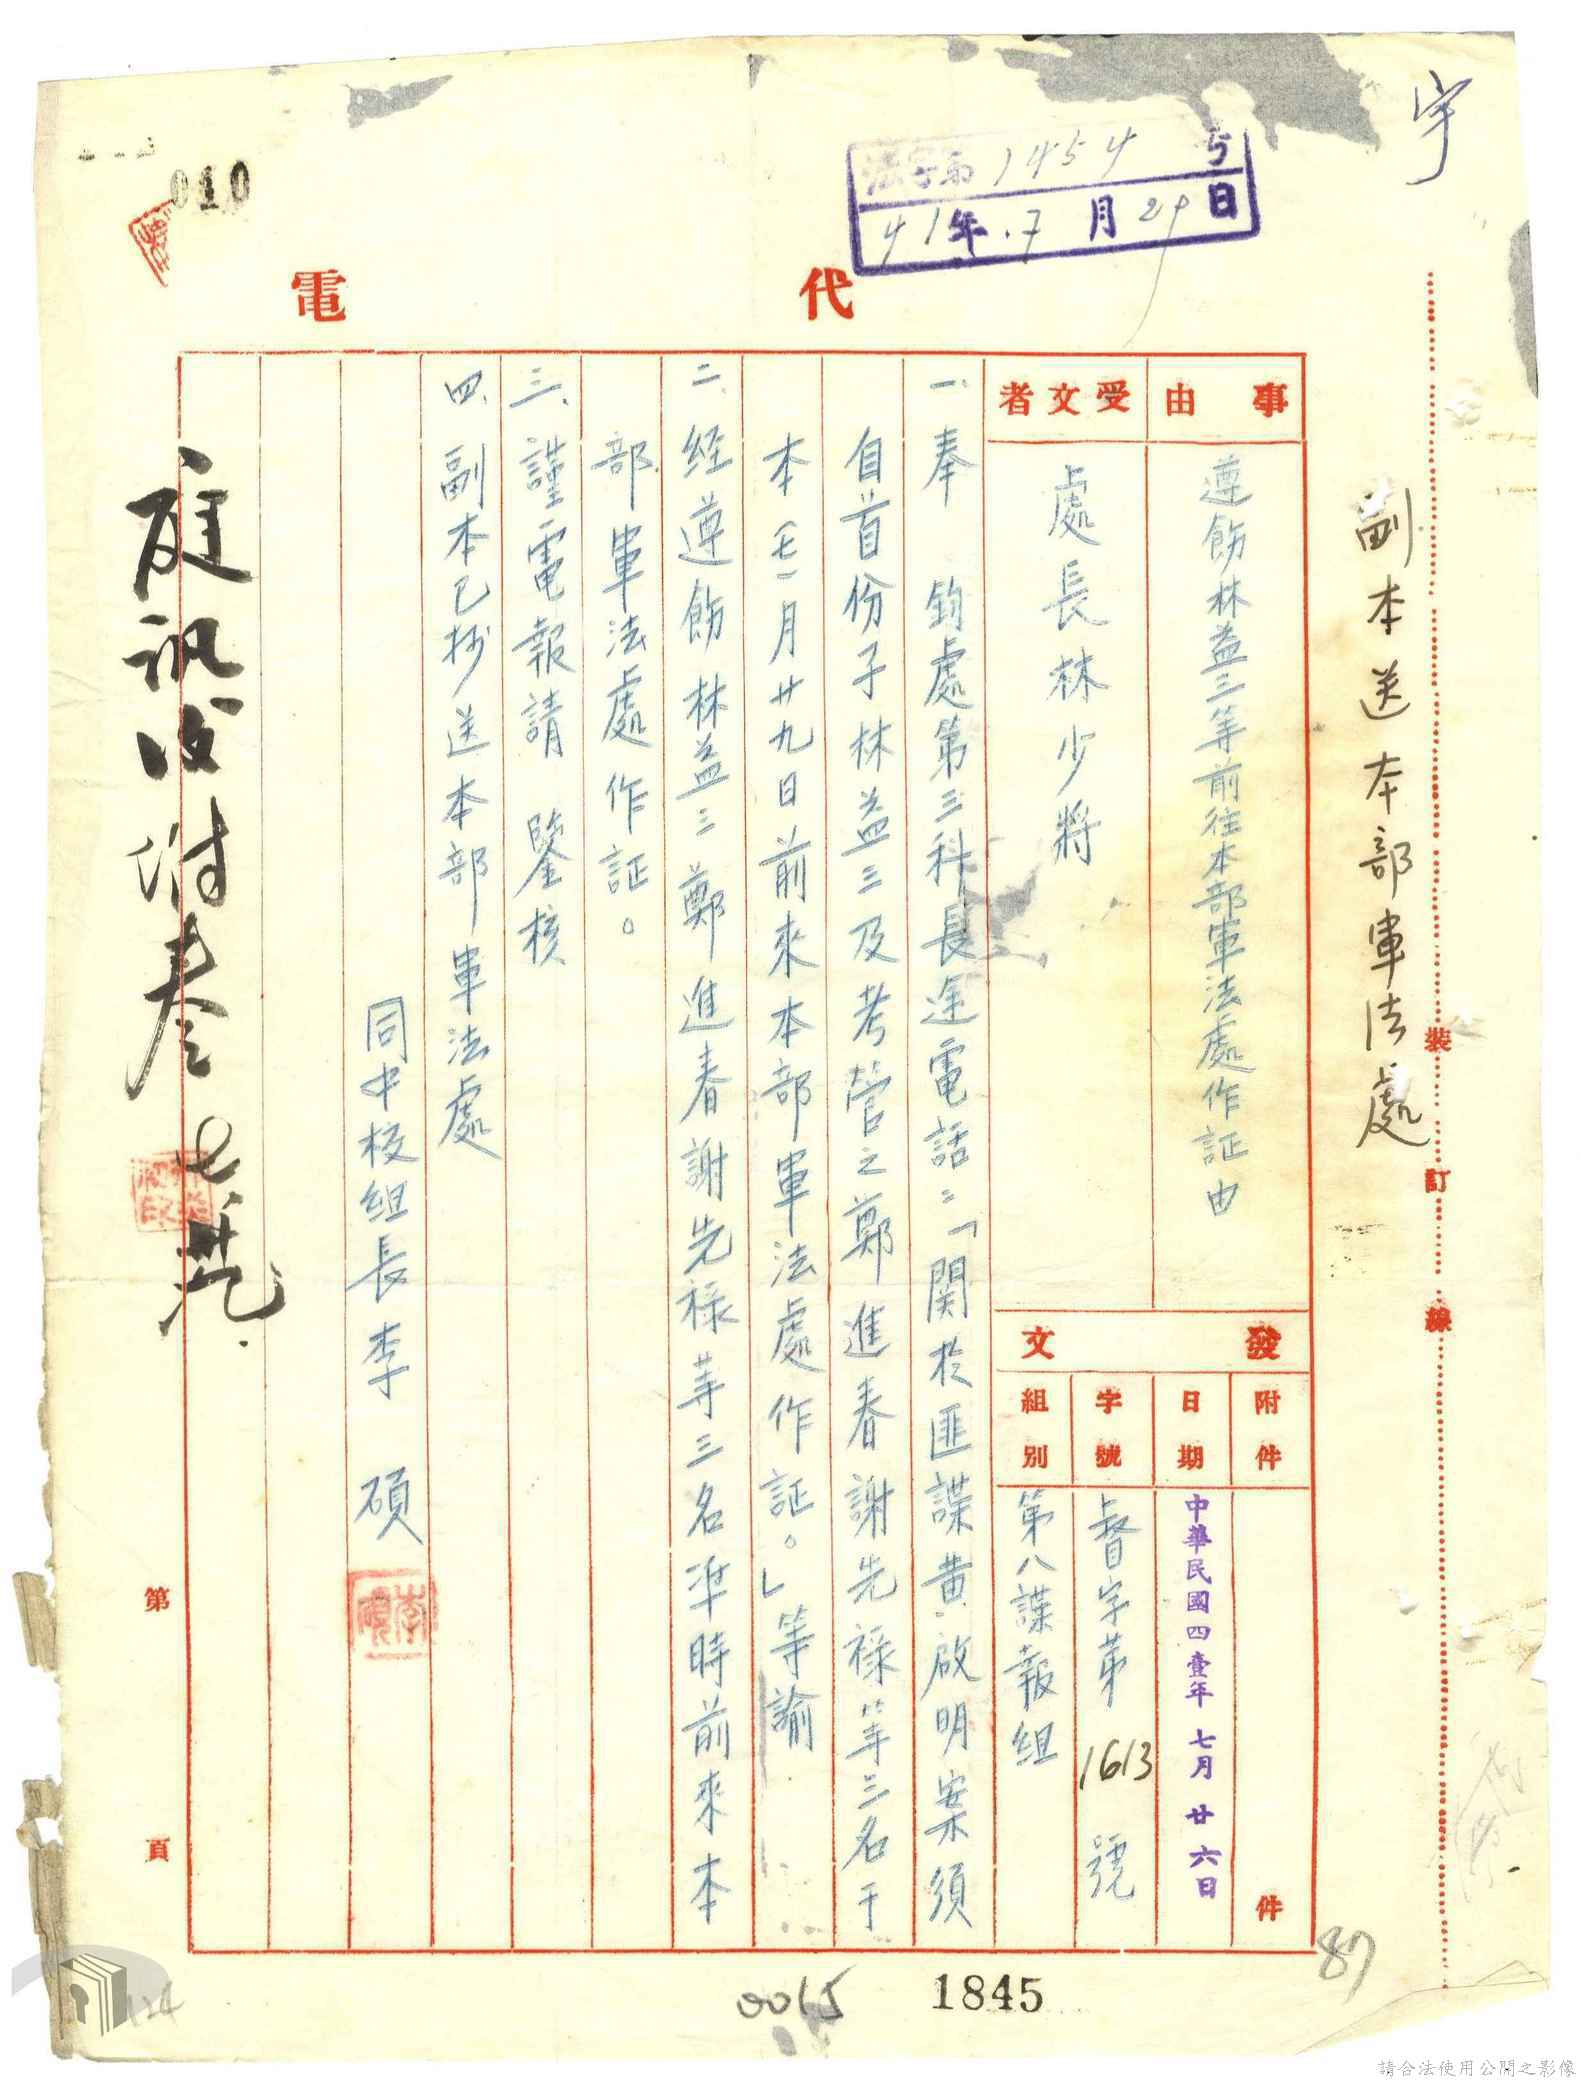 宇
法字第1454号
41年.7月29日
010
代電
副本送本部軍法處
裝訂線
事由
遵飭林益三等前往本部軍法處作証由
受文者
處長林少將
發文
附件
件
日期
中華民國四壹年七月廿六日
字號
督字第1613號
組別
第八諜報組
一、奉 鈞處第三科長途電話：「関於匪諜黄啟明案須
自首份子林益三及考管之鄭進春謝先祿等三名于
本(七)月廿九日前來本部軍法處作証。」等諭
二、経遵飭林益三鄭進春謝先祿等三名準時前來本
部軍法處作証。
三、謹電報請 鑒核
四、副本已抄送本部軍法處
同中校組長李 碩
李碩
庭訊後附卷
第 頁
87
0015
1845
124
請合法使用公開之影像